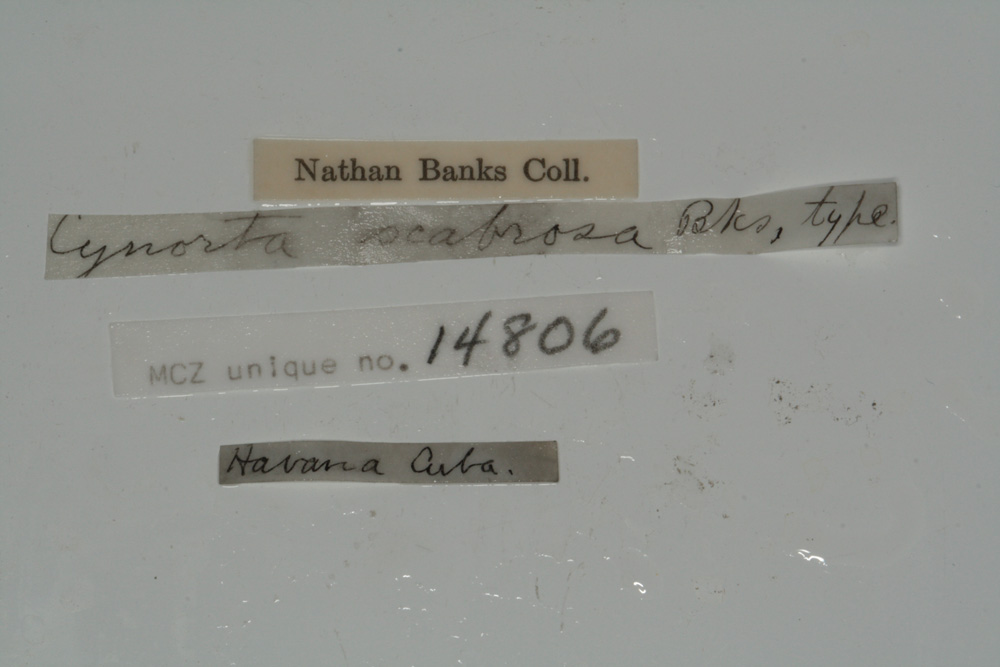 Nathan Banks Coll.
Cynorta scabrosa Bks, type.
MCZ unique no. 14806
Havana Cuba.